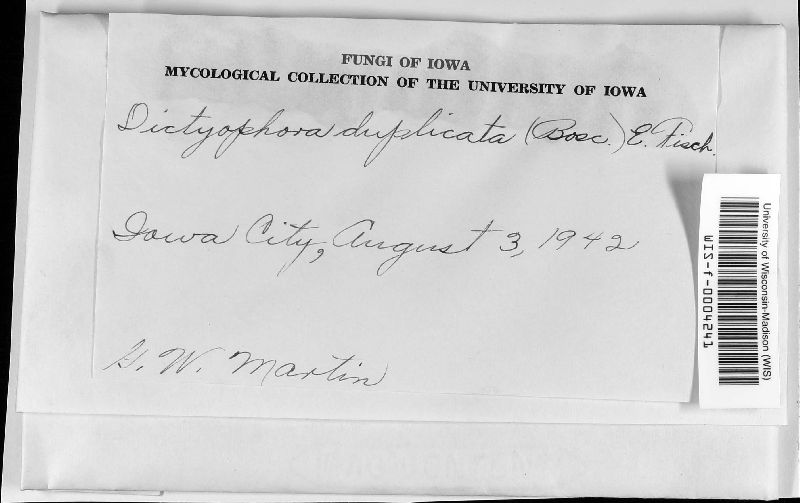 FUNGI OF IOWA
MYCOLOGICAL COLLECTION OF THE UNIVERSITY OF IOWA
Dictyophora duplicata (Bosc.) E. Fisch.
Iowa City, August 3, 1942
G. W. Martin
University of Wisconsin-Madison (WIS)
WIS-f-0004241